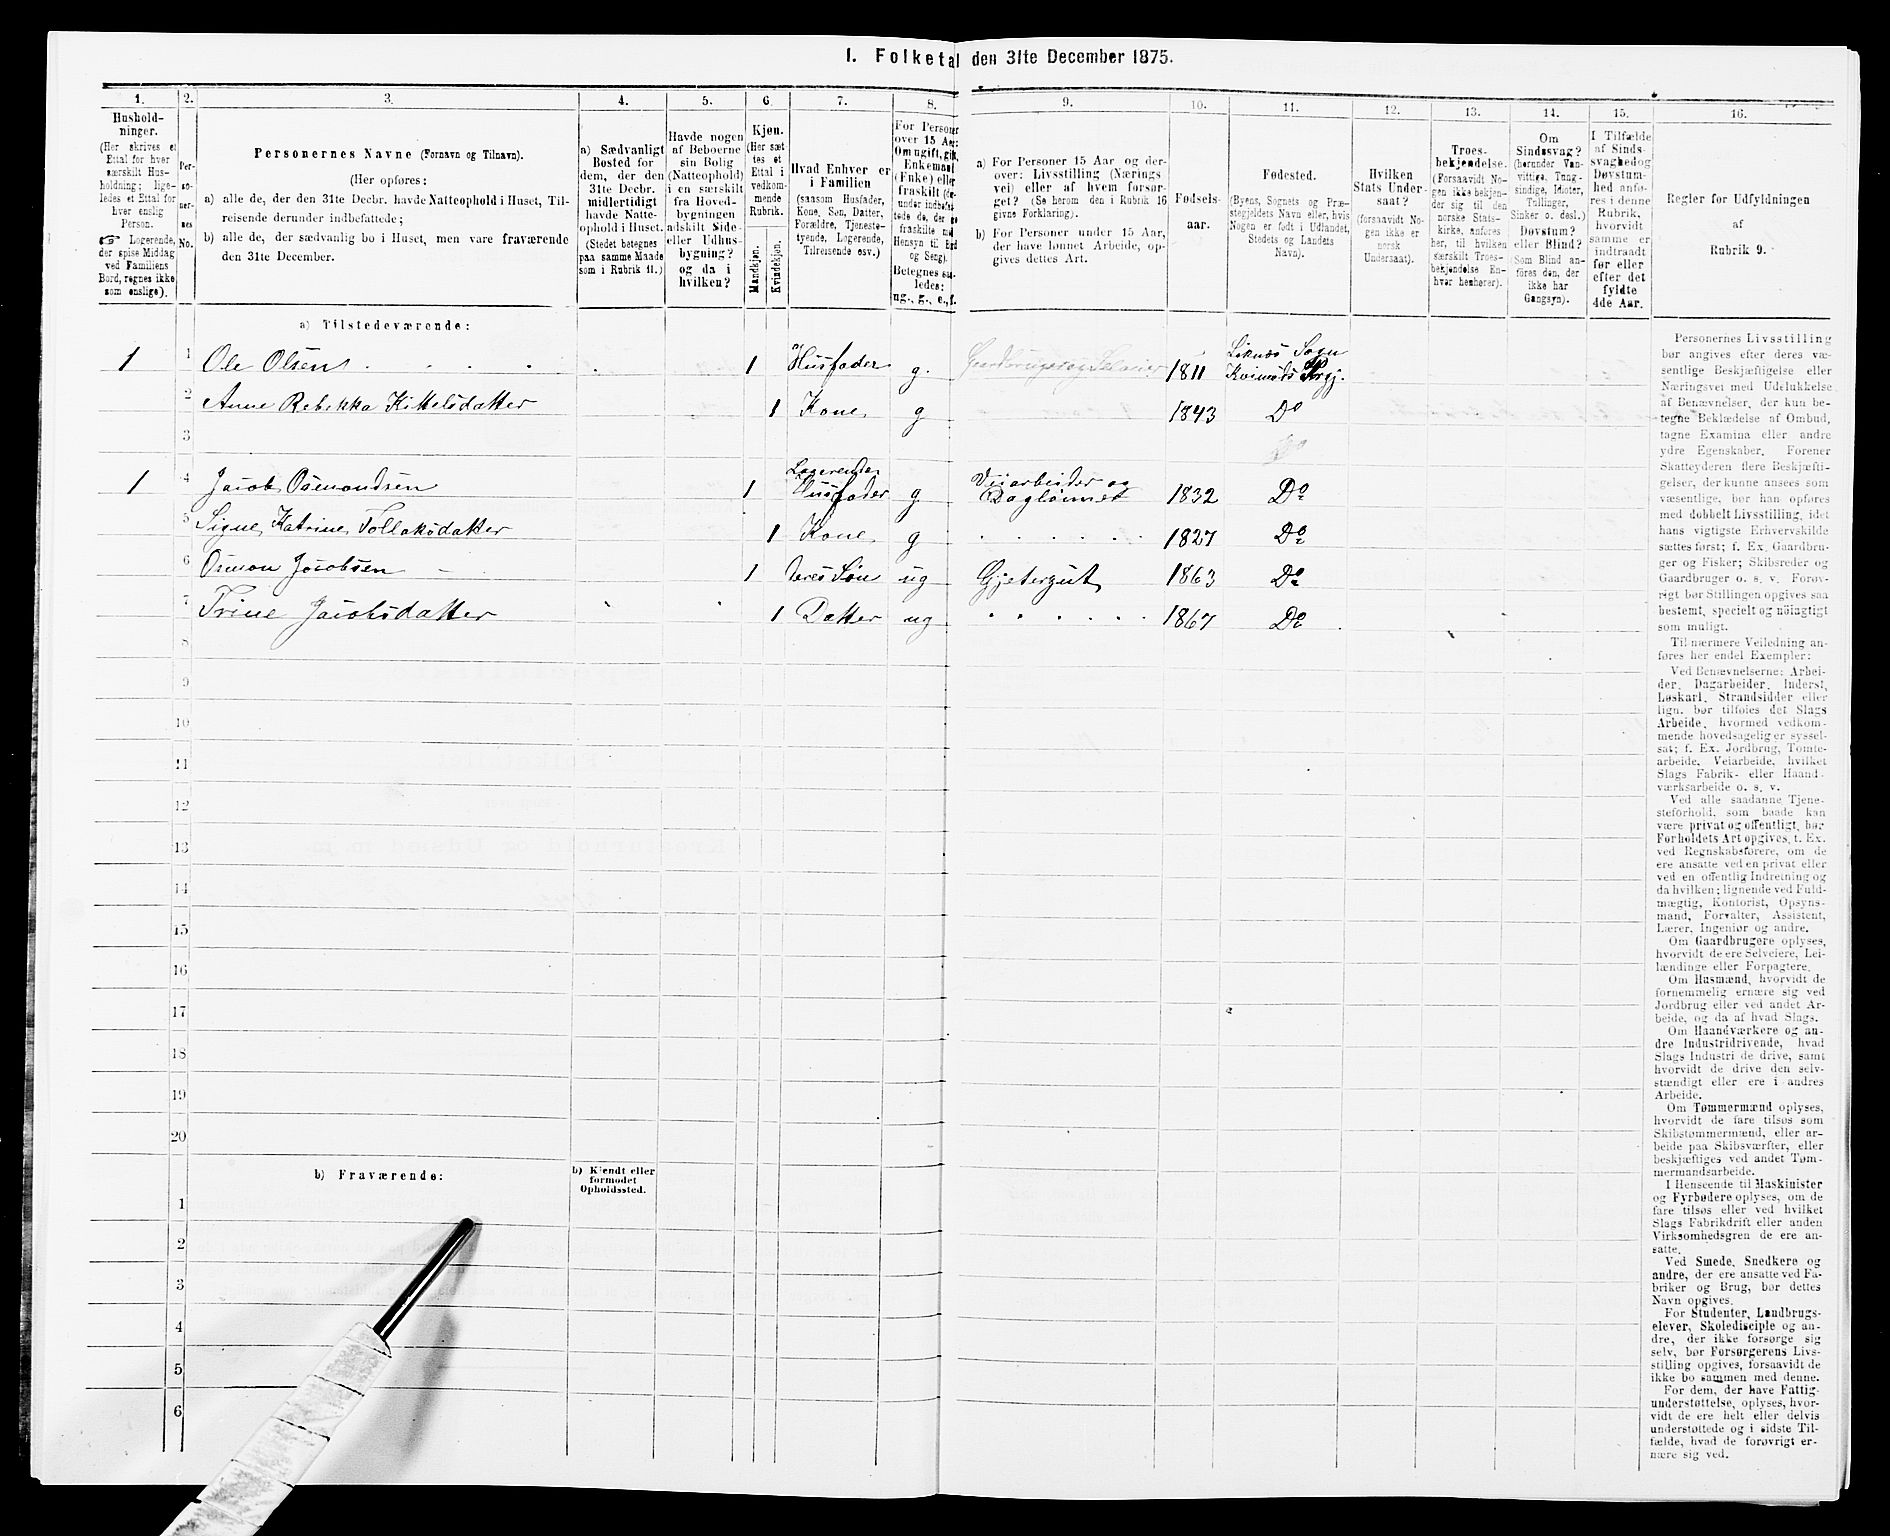 I. Folketal den 31te December 1875.
1.
2.
3.
4.
5.
6.
7.
8.
9.
10.
11.
12.
13.
14.
15.
16.
Hushold-
ninger.
(Her skrives et
Ettal for hver
særskilt Hus-
holdning; lige-
ledes et Ettal for
hver enslig
Person.
☞ Logerende,
der spise Middag
ved Familiens
Bord, regnes ikke
som enslige).
Per-
so-
ner-
nes
No.
Personernes Navne (Fornavn og Tilnavn).
(Her opføres:
a) alle de, der den 31te Decbr. havde Natteophold i Huset, Til-
reisende derunder indbefattede;
b) alle de, der sædvanlig bo i Huset, men vare fraværende
den 31te December.
a) Sædvanligt
Bosted for
dem, der den
31te Decbr.
midlertidigt
havde Natte-
ophold i Huset.
(Stedet betegnes
paa samme Maade
som i Rubrik 11.)
Havde nogen
af Beboerne
sin Bolig
(Natteophold)
i en særskilt
fra Hoved-
bygningen
adskilt Side-
eller Udhus-
bygning?
og da i
hvilken?
Kjøn.
(Her sæt-
tes et
Ettal i
vedkom-
mende
Rubrik.
Mandkjøn.
Kvindekjøn.
Hvad Enhver er
i Familien
(saasom Husfader,
Kone, Søn, Datter,
Forældre, Tjeneste-
tyende, Logerende,
Tilreisende osv.)
For Personer
over 15 Aar:
Om ugift, gift,
Enkemand
(Enke) eller
fraskilt (der-
under indbefat-
tede de, der ere
fraskilte med
Hensyn til Bord
og Seng).
Betegnes saa-
ledes:
ug., g., e., f.
a) For Personer 15 Aar og der-
over: Livsstilling (Nærings-
vei) eller af hvem forsør-
get? (Se herom den i Rubrik 16
givne Forklaring).
b) For Personer under 15 Aar,
der have lønnet Arbeide, op-
gives dettes Art.
Fødsels-
aar.
Fødested.
(Byens, Sognets og Præ-
stegjeldets Navn eller, hvis
Nogen er født i Udlandet,
Stedets og Landets
Navn).
Hvilken
Stats Under-
saat?
(forsaavidt No-
gen ikke er
norsk
Undersaat).
Troes-
bekjendelse.
(Forsaavidt No-
gen ikke bekjen-
der sig til den
norske Stats-
kirke, anføres
her, til hvilken
særskilt Troes-
bekjendelse En-
hver henhører).
Om
Sindssvag?
(herunder Van-
vittige, Tung-
sindige, Idioter,
Tullinger,
Sinker o. desl.)
Døvstum?
eller Blind?
(Som Blind an-
føres den, der
ikke har
Gangsyn).
I Tilfælde
af Sinds-
svaghed og
Døvstum-
hed anfø-
res i denne
Rubrik,
hvorvidt
samme er
indtraadt
før eller
efter det
fyldte
4de Aar.
Regler for Udfyldningen
af
Rubrik 9.
a) Tilstedeværende:
1 1 Ole Olsen 1 Husfader g. Gaardbruger og Selveier 1811 Liknæs Sogn
Kvinesds Prgj.
2 Anne Rebekka Kittelsdatter 1 Kone g 1843 Do
3
1 4 Jacob Osmondsen 1 Logerende
Husfader g Veiarbeider og
Daglønnet 1832 Do
5 Signe Katrine Tollaksdatter 1 Kone g 1827 Do
6 Osmon Jacobsen 1 deres Søn ug Gjetergut 1863 Do
7 Trine Jacobsdatter 1 Datter ug 1867 Do
8
9
10
11
12
13
14
15
16
17
18
19
20
b) Fraværende:
b) Kjendt eller
formodet
Opholdssted.
1
2
3
4
5
6
Personernes Livsstilling
bør angives efter deres væ-
sentlige Beskjæftigelse eller
Næringsvei med Udelukkelse
af Benævnelser, der kun be-
tegne Beklædelse af Ombud,
tagne Examina eller andre
ydre Egenskaber. Forener
Skatteyderen flere Beskjæfti-
gelser, der kunne ansees som
væsentlige, bør han opføres
med dobbelt Livsstilling, idet
hans vigtigste Erhvervskilde
sættes først; f. Ex. Gaardbru-
ger og Fisker; Skibsreder og
Gaardbruger o. s. v. Forøv-
rigt bør Stillingen opgives saa
bestemt, specielt og nöiagtigt
som muligt.
Til nærmere Veiledning an-
føres her endel Exempler:
Ved Benævnelserne: Arbei-
der, Dagarbeider, Inderst,
Løskarl, Strandsidder eller
lign. bør tilføies det Slags
Arbeide, hvormed vedkom-
mende hovedsagelig er syssel-
sat; f. Ex. Jordbrug, Tomte-
arbeide, Veiarbeide, hvilket
Slags Fabrik- eller Haand-
værksarbeide o. s. v.
Ved alle saadanne Tjene-
steforhold, som baade kan
være privat og offentligt, bør
Forholdets Art opgives, t. Ex.
ved Regnskabsførere, om de
ere ansatte ved en privat eller
ved en offentlig Indretning og
da hvilken; lignende ved Fuld-
mægtig, Kontorist, Opsyns-
mand, Forvalter, Assistent,
Lærer, Ingeniør og andre.
Om Gaardbrugere oplyses,
hvorvidt de ere Selveiere, Lei-
lændinge eller Forpagtere.
Om Husmænd, hvorvidt de
fornemmelig ernære sig ved
Jordbrug eller ved andet Ar-
beide, og da af hvad Slags.
Om Haandværkere og an-
dre Industridrivende, hvad
Slags Industri de drive, samt
hvorvidt de drive den selv-
stændigt eller ere i andres
Arbeide.
Om Tømmermænd oplyses,
hvorvidt de fare tilsøs som
Skibstømmermænd, eller ar-
beide paa Skibsværfter, eller
beskjæftiges ved andet Tøm-
mermandsarbeide.
I Henseende til Maskinister
og Fyrbødere oplyses, om de
fare tilsøs eller ved hvilket
Slags Fabrikdrift eller anden
Virksomhedsgren de ere an-
satte.
Ved Smede, Snedkere og
andre, der ere ansatte ved Fa-
briker og Brug, bør dettes
Navn opgives.
For Studenter, Landbrugs-
elever, Skoledisciple og an-
dre, der ikke forsørge sig
selv, bør Forsørgerens Livs-
stilling opgives, forsaavidt de
ikke bo sammen med denne.
For dem, der have Fattig-
understøttelse, oplyses, hvor-
vidt de ere helt eller delvis
understøttede og i sidste Til-
fælde, hvad de forøvrigt er-
nære sig ved.